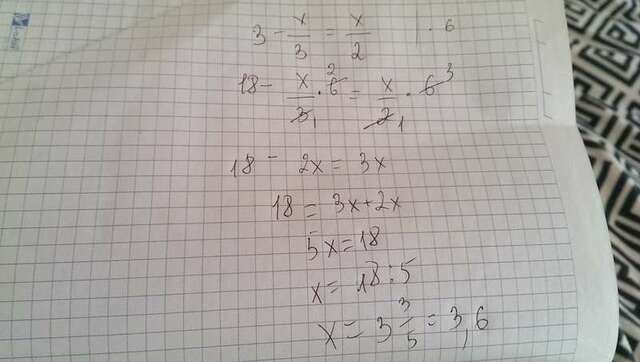 3 - x/3 = x/2 | · 6
18 - x/3 1 · 6 2 = x/2 1 · 6 3
18 - 2x = 3x
18 = 3x+2x
5x = 18
x = 18:5
x = 3 3/5 = 3,6